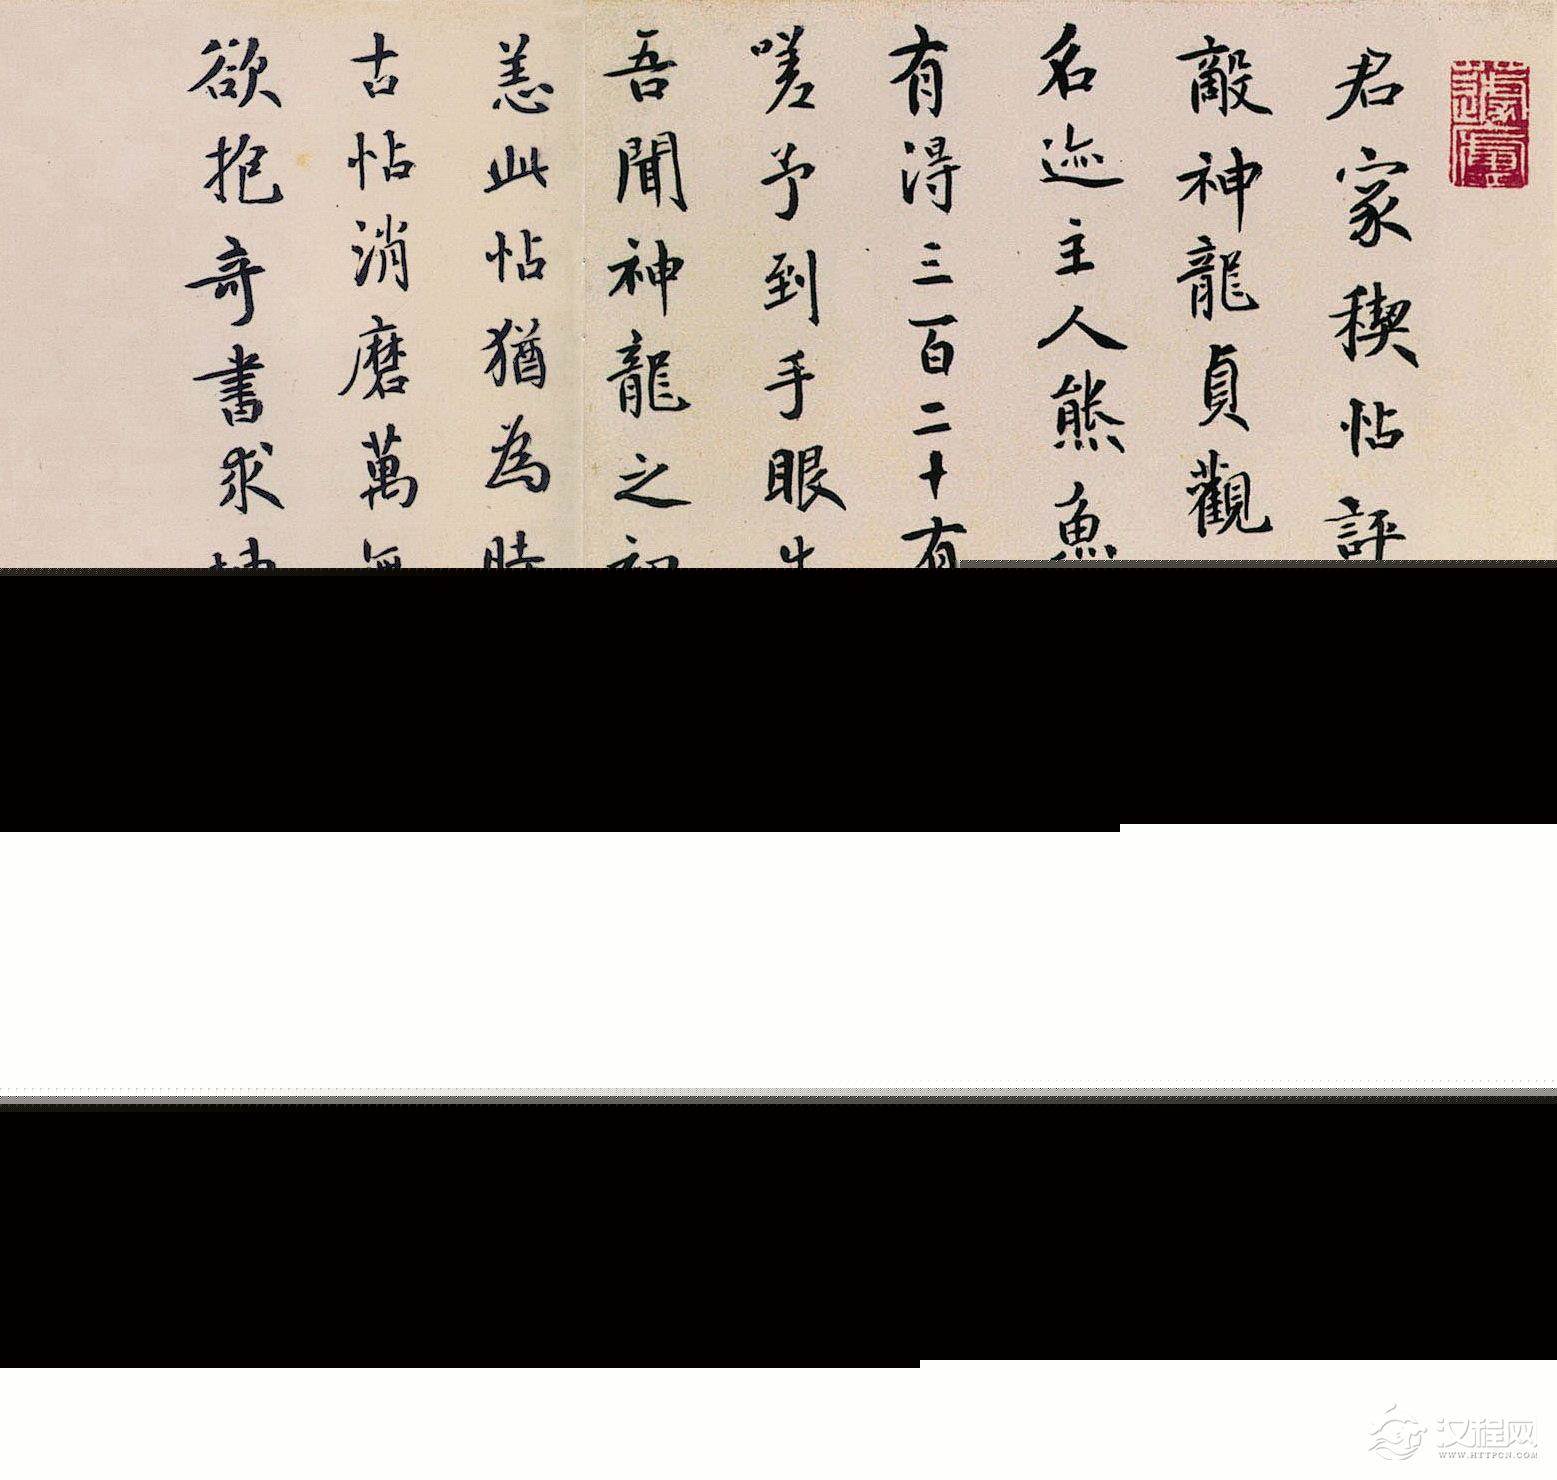 君家稧帖評
敵神龍貞觀
名迹主人熊魚
有淂三百二十有
嗟予到手眼生
吾聞神龍之初
恙此帖猶為時
古帖消磨萬無
欲抱奇書求
汉程网
WWW.HTTPCN.COM